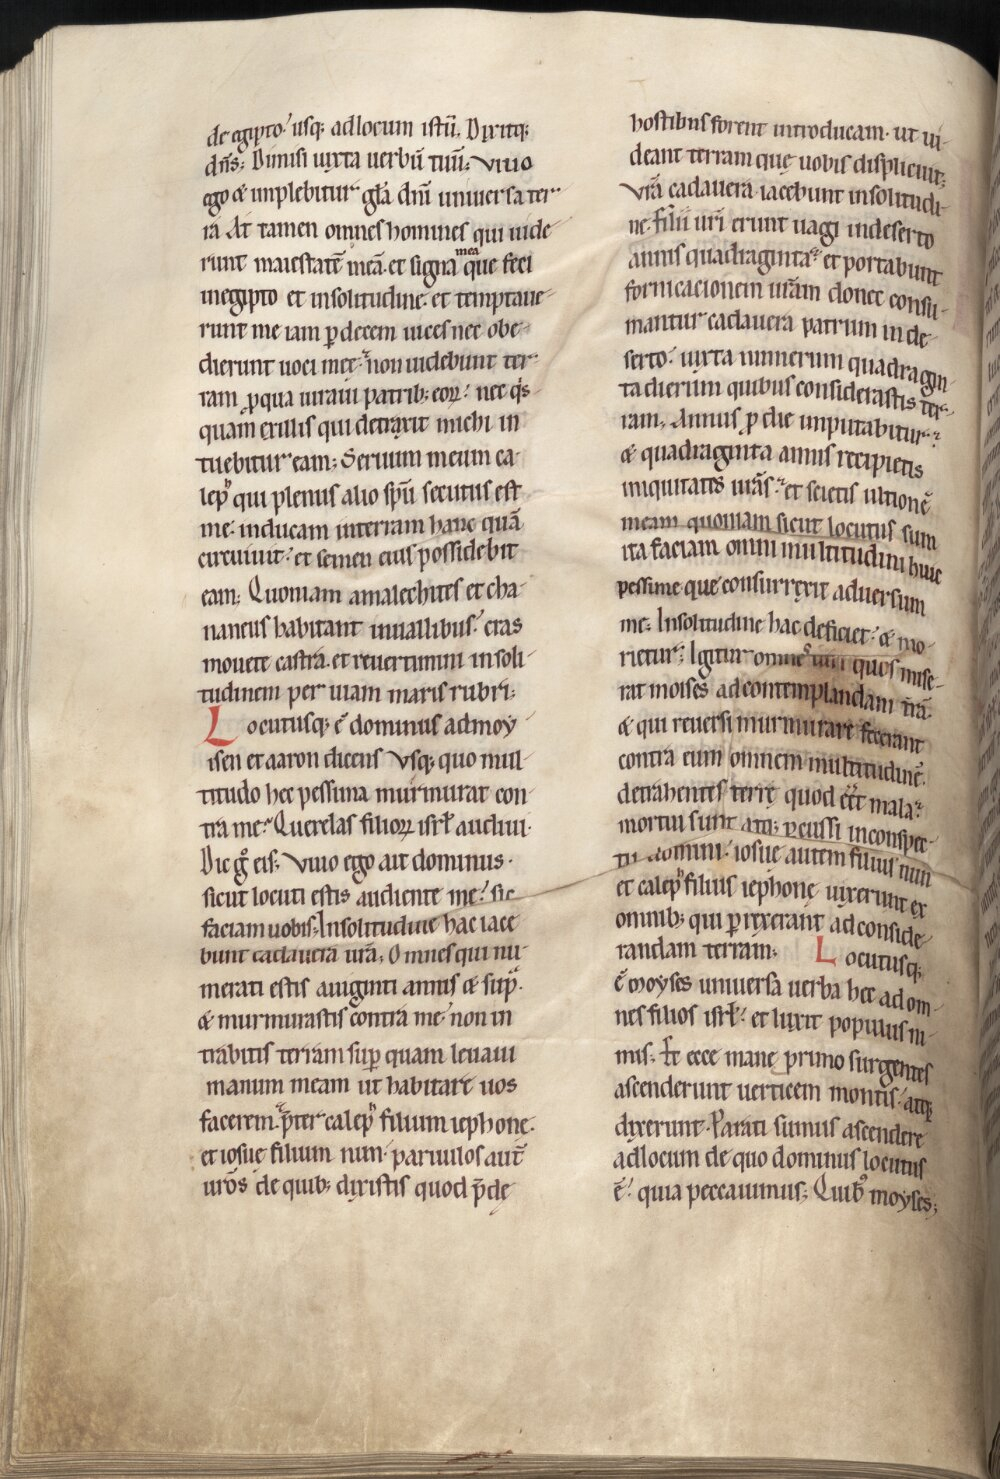 de egipto. usq; ad locum istū. Dixitq;
dn̄s; Dimisi iuxta uerbū tuū; Viuo
ego & implebitur gl̄a dn̄i uniuersa ter-
ra At tamen omnes homines qui uide-
runt maiestatē meā. et signa mea que feci
in egipto et in solitudine. et temptaue-
runt me iam p̱ decem uices nec obe-
dierunt uoci mee. non uidebunt ter-
ram ꝓ qua iuraui patrib; eoꝝ. nec q̇s-
quam ex illis qui detraxit michi in-
tuebitur eam; Seruum meum ca-
lep qui plenus alio sp̄u secutus est
me. inducam in terram hanc quā
circuiuit. et semen eius possidebit
eam; Quoniam amalechites et cha-
naneus habitant in uallibus. cras
mouete castra. et reuertimini in soli-
tudinem per uiam maris rubri;
Locutusq; ē dominus ad moy-
isen et aaron dicens Vsq; quo mul-
titudo hec pessima murmurat con-
tra me. Querelas filioꝝ isrl̄ audiui.
Dic g̊ eis; Viuo ego ait dominus.
sicut locuti estis audiente me. sic
faciam uobis; In solitudine hac iace-
bunt cadauera ur̄a; Omnes qui nu-
merati estis a uiginti annis & sup̱.
& murmurastis contra me. non in-
trabitis terram sup̱ quam leuaui
manum meam ut habitare uos
facerem. p̄ter calep filium iephone.
et iosue filium nun. paruulos aut̄
uros de quib; dixistis quod p̄de
hostibus forent introducam. ut ui-
deant terram que uobis displicuit;
Vr̄a cadauera iacebunt in solitudi-
ne. filii uri erunt uagi in deserto
annis quadraginta. et portabunt
fornicacionem ur̄am donec consu-
mantur cadauera patrum in de-
serto. iuxta numerum quadragin-
ta dierum quibus considerastis ter-
ram; Annus p̱ die imputabitur.
& quadraginta annis recipietis
iniquitates uras. et scietis ultionē
meam quoniam sicut locutus sum
ita faciam omni multitudini huic
pessime que consurrexit aduersum
me; In solitudine hac deficiet. & mo-
rietur; Igitur omnes uiri quos mise-
rat moises ad contemplandam tr̄a.
& qui reuersi murmurare fecerant
contra eum omnem multitudinē.
detrahentes terre quod eēt mala.
mortui sunt atq; percussi in conspec-
tu domini. iosue autem filius nun
et calep filius iephone uixerunt ex
omnib; qui p̱rexerant ad conside-
randam terram; Locutusq;
ē moyses uniuersa uerba hec ad om-
nes filios isrl̄. et luxit populus ni-
mis; Et ecce mane primo surgentes
ascenderunt uerticem montis. atq;
dixerunt. Parati sumus ascendere
ad locum de quo dominus locutus
ē. quia peccauimus; Quib; moyses;